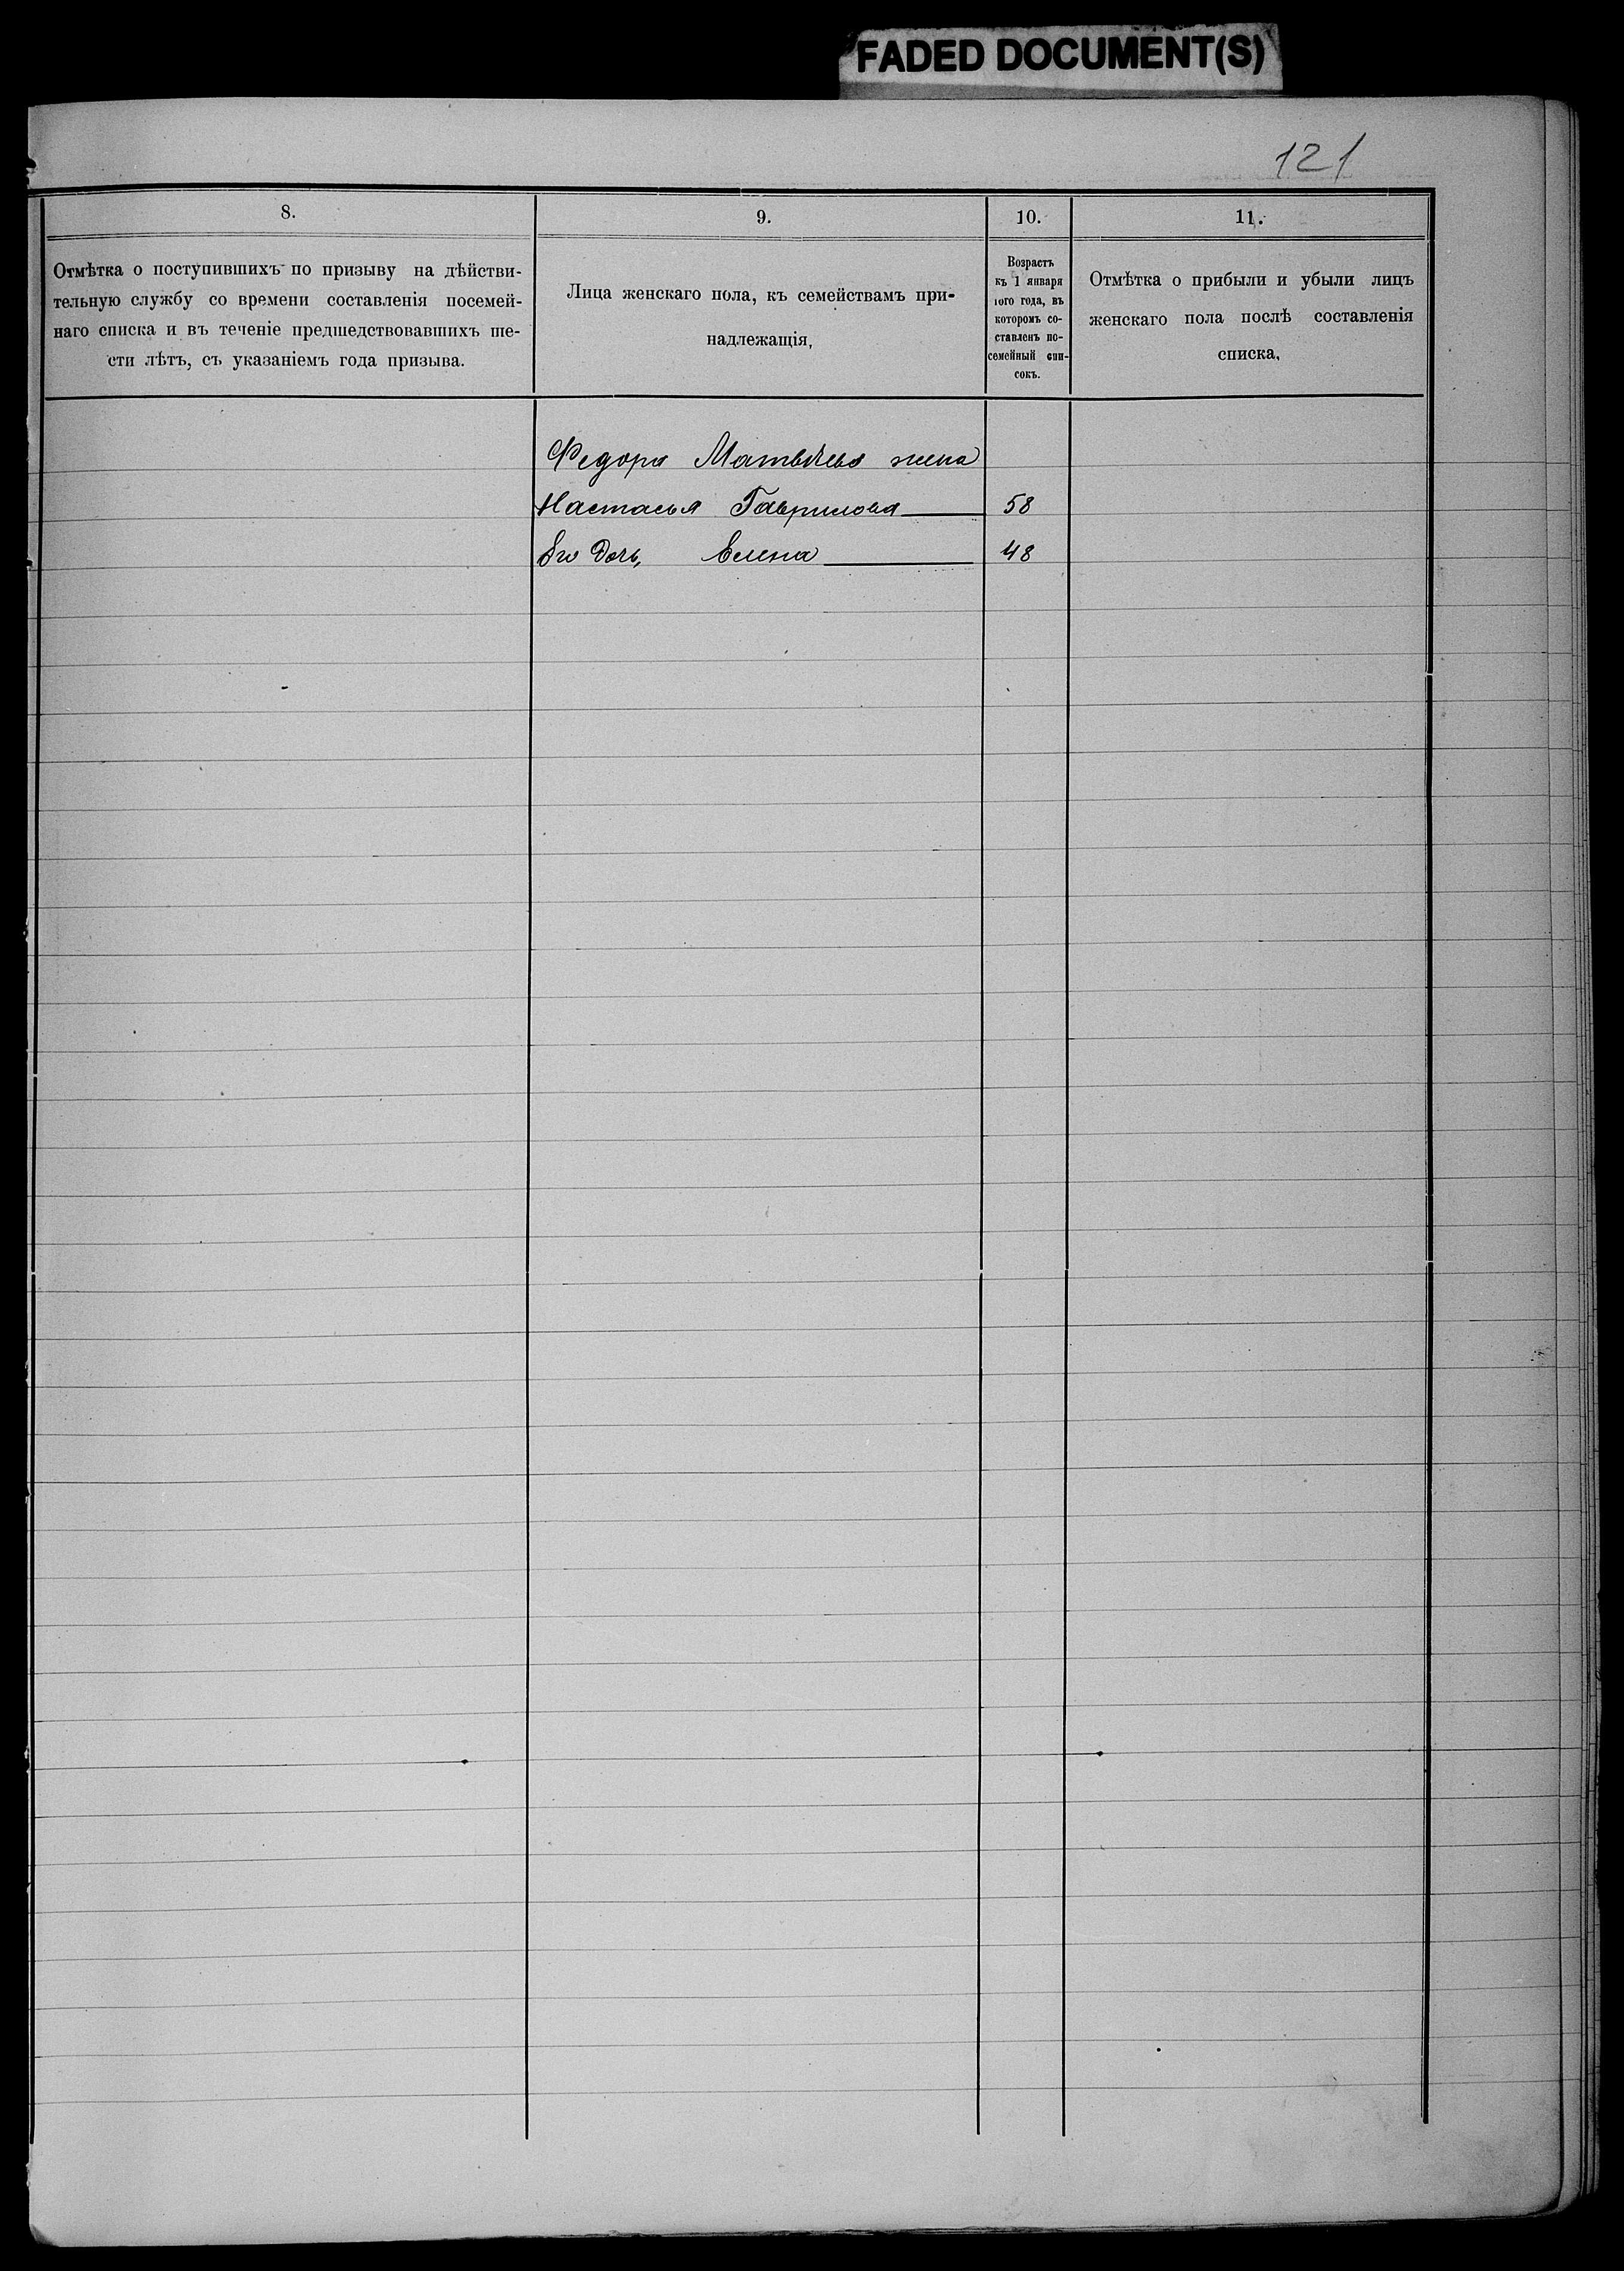 FADED DOCUMENT(S)
121
8.
Отмѣтка о поступившихъ по призыву на дѣйстви-
тельную службу со времени составленія посемей-
наго списка и въ теченіе предшедствовавшихъ ше-
сти лѣтъ, съ указаніемъ года призыва.
9.
Лица женскаго пола, къ семействамъ при-
надлежащія,
10.
Возрастъ
къ 1 января
того года, въ
которомъ со-
ставленъ по-
семейный спи-
сокъ.
11.
Отмѣтка о прибыли и убыли лицъ
женскаго пола послѣ составленія
списка,
Федора Матвѣева жена
Настасья Гаврилова 58
Его дочь, Елена 48